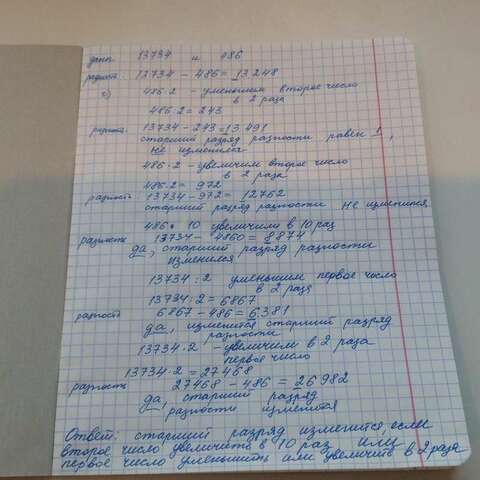 дано 13734 и 486
разность 13734 - 486 = 13248
486:2 - уменьшим второе число
в 2 раза
486:2 = 243
разность 13734 - 243 = 13.491
старший разряд разности равен 1,
не изменился
486·2 - увеличим второе число
в 2 раза
486·2 = 972
разность 13734 - 972 = 12762
старший разряд разности не изменился
486· 10 увеличим в 10 раз
разность 13734 - 4860 = 8874
да, старший разряд разности
изменился
13734 : 2 уменьшим первое число
в 2 раза
13734:2 = 6867
разность 6867 - 486 = 6381
да, изменится старший разряд
разности
13734·2 - увеличим в 2 раза
первое число
13734·2 = 27468
разность 27468 - 486 = 26982
да, старший разряд
разности изменится
Ответ: старший разряд изменится, если
второе число увеличить в 10 раз или
первое число уменьшить или увеличить в 2 раза